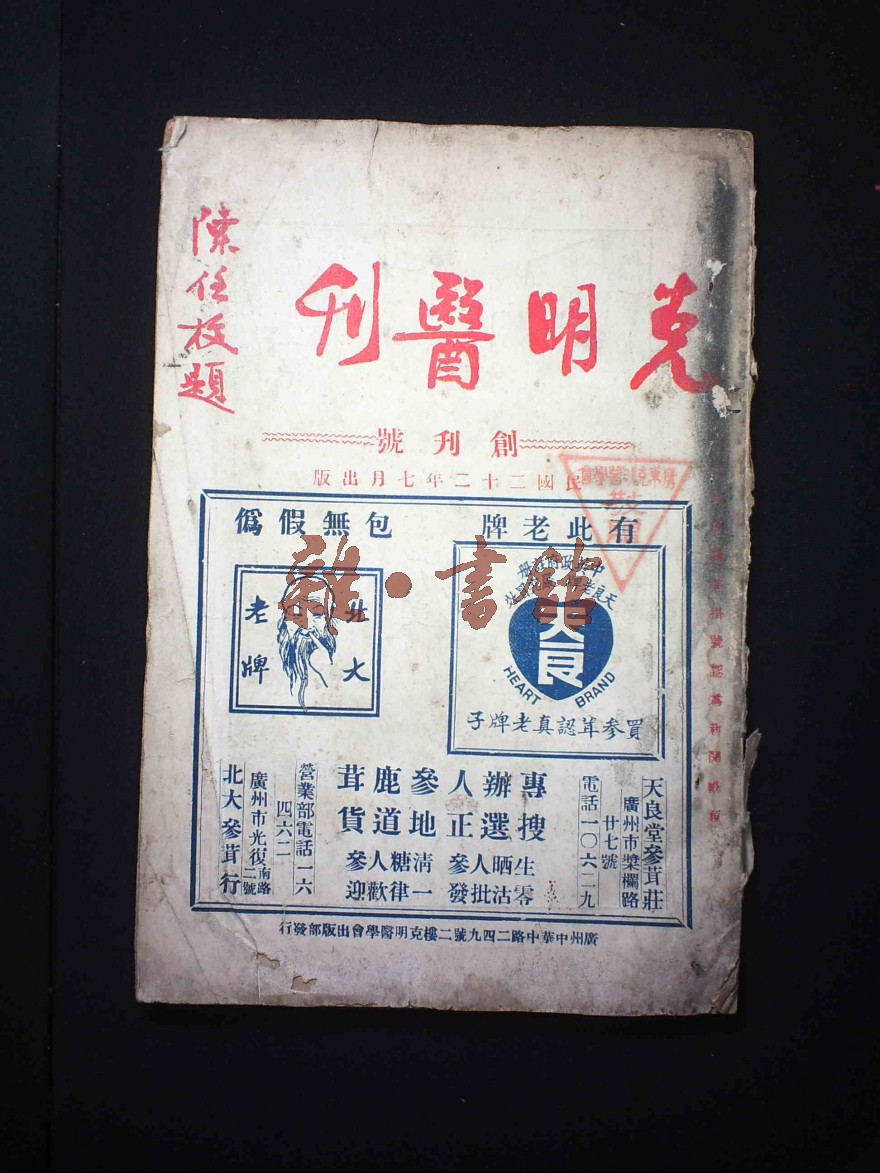 克明醫刊
陳任枚題
創刊號
民國二十二年七月出版
廣東克明醫學會
有此老牌
包無假僞
天良
HEART BRAND
買參茸認真老牌子
北大
老牌
天良堂參茸莊
廣州市獎欄路
廿七號
電話一〇六二一九
專辦人參鹿茸
搜選正地道貨
生晒人參清糖人參
零沽批發一律歡迎
營業部電話一六
四六二
廣州市光復南路
二號
北大參茸行
廣州中華中路二四九號二樓克明醫學會出版部發行
雜·書館